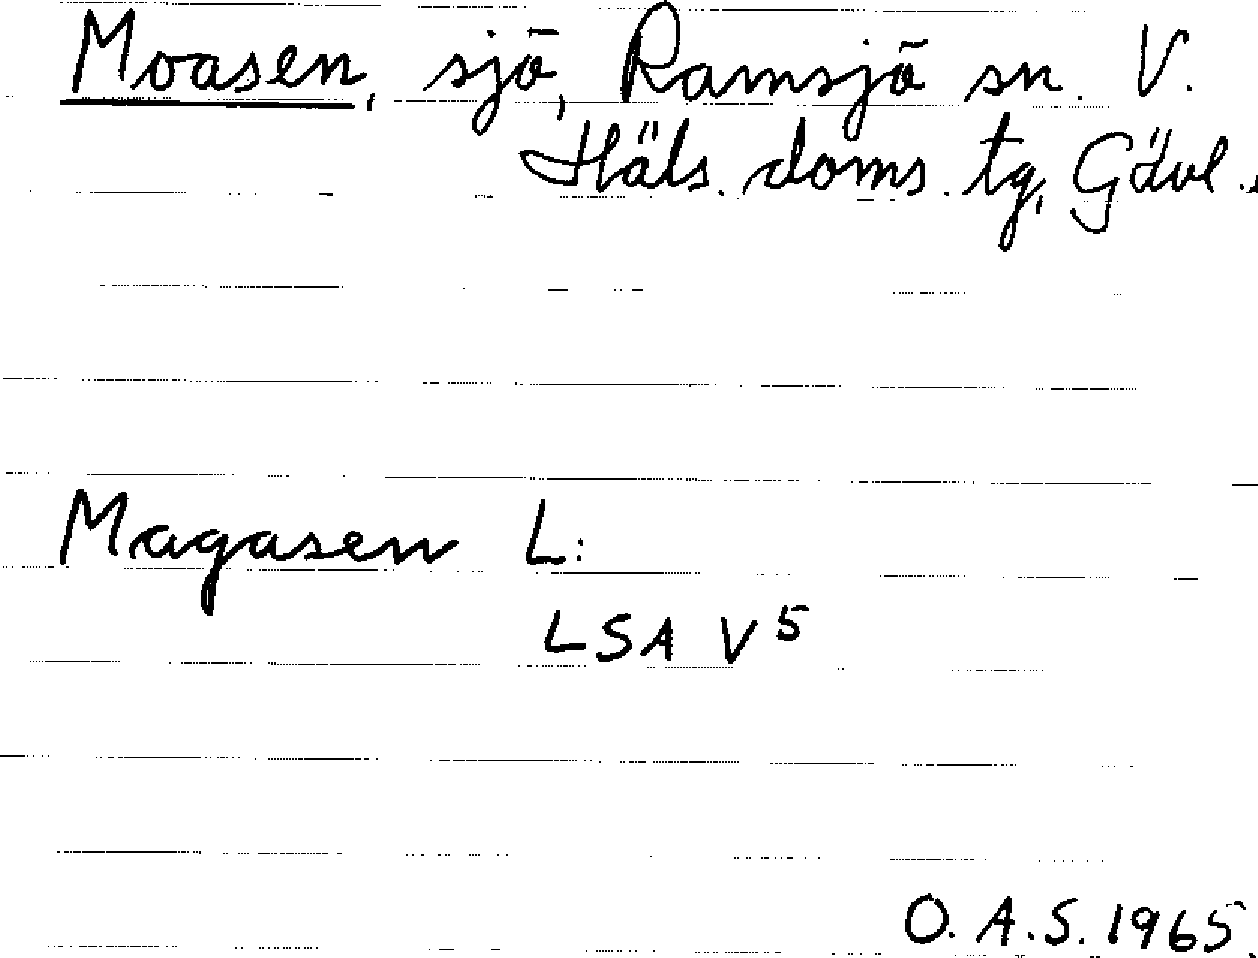 Moasen, sjö, Ramsjö sn. V.
Häls. doms. tg, Gävl.
Magasen L:
LSA V5
O. A. S. 1965.